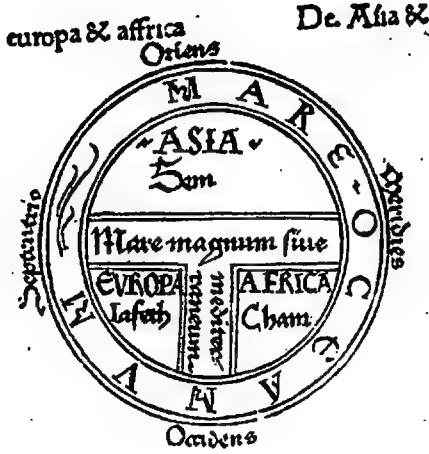 De. Asia &
europa & affrica
Oriens
MARE-OCEANVM
ASIA
Sem
Meridies
Septentrio
Mare magnum siue
mediterraneum
EVROPA
Iafeth
AFRICA
Cham
Occidens